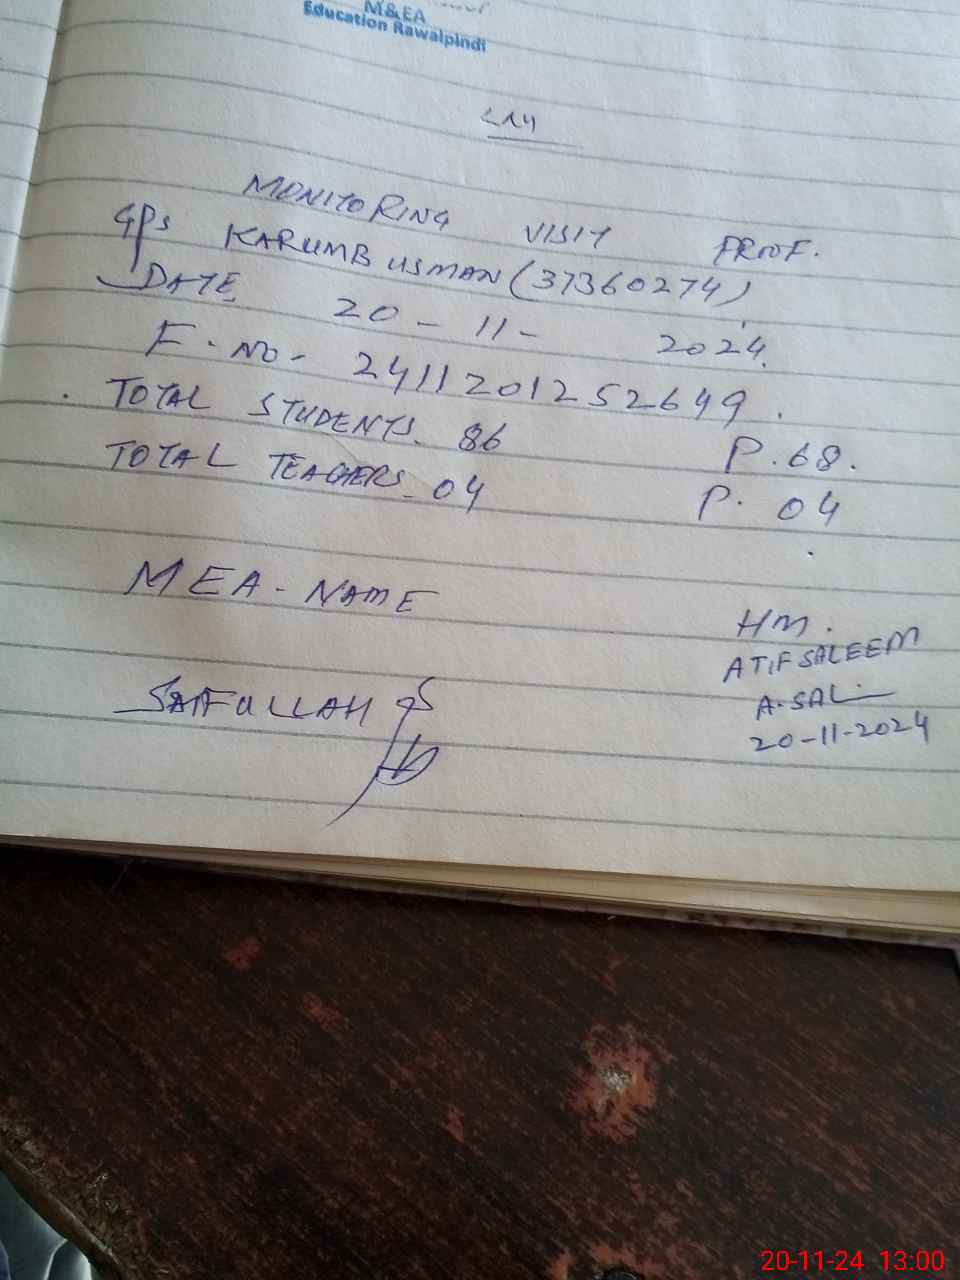 M&EA
Education Rawalpindi
MONITORING VISIT PROOF.
GPS KARUMB USMAN (37360274)
DATE 20-11-2024.
F.NO- 2411201252649.
TOTAL STUDENTS. 86 P.68.
TOTAL TEACHERS. 04 P. 04
MEA-NAME
HM.
ATIF SALEEM
SAIFULLAH
A.SAL
20-11-2024
20-11-24 13:00